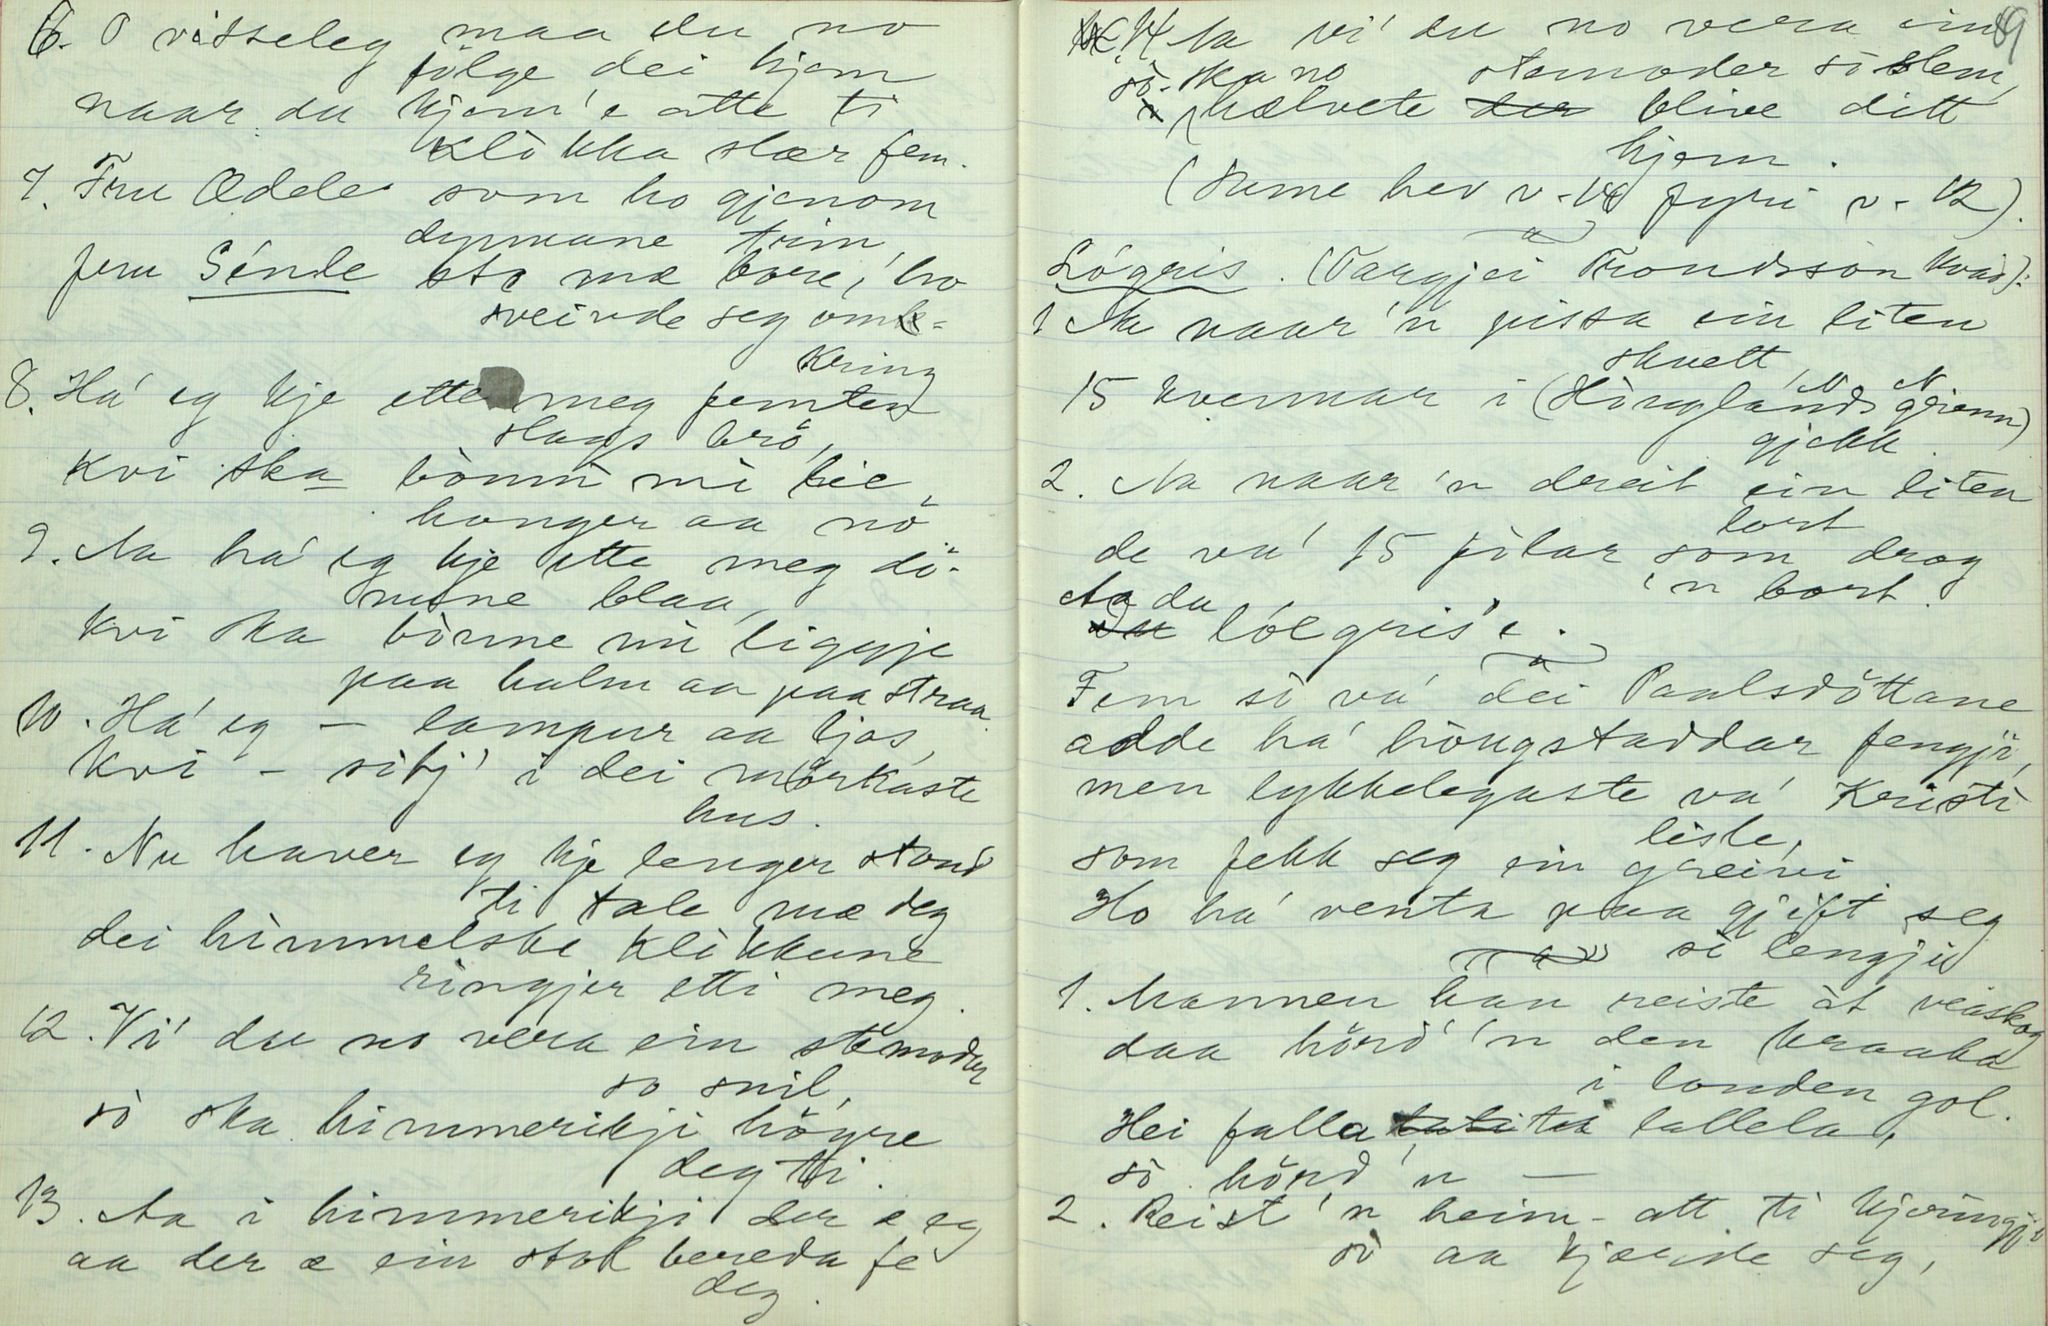 6. O visseleg maa du no
fölge dei hjem
naar du kjem'e atte ti
klòkka slær fem.
7. Fru Ædele som ho gjenom
dynnane trin,
fru Sínde sto mæ bore, ho
sveivde seg om-
kring
8. Há' eg kje ette meg femten
slags brö,
kvi ska bònni mi lie
honger aa nö
9. Aa há' eg kje ette meg dí-
nune blaa,
kvi ska bònne mi liggje
paa halm aa paa straa.
10. Há' eg – lampur aa ljos,
kvi – sitj' i dei mörkaste
hus.
11. Nu haver eg kje lenger stond
ti tale mæ deg
dei himmelske klòkkune
ringjer etti meg.
12. Vi' du no vera ein stemoder
so snil,
sò ska himmerikji högre
deg ti.
13. Aa i himmerikji der e eg
aa der æ ein stol bereda fe
deg.
89
14 Aa vi' du no vera ein
stemoder sò slem,
sò ska no
hælvete der blive ditt
hjem.
(Sume hev v. 14 fyri v. 12).
Lógris. (Targjei Trondsson kvad):
1 Aa naar 'n pissa ein liten
skvett,
15 kvennar i (Hòuglands grenn)
gjekk.
2. Aa naar 'n dreit ein liten
lort
de va' 15 filar som drog
'n bort.
Aa du
Du lólgris'e.
Fem sò va' dei Paalsdöttane
adde há' hòugstaddar fengji,
men lykkelegaste va' Kristi
lisle,
som fekk seg ein greivi
Ho há' venta paa gjift seg
sò lengji
1. Mannen han reiste åt veaskog
daa hörd' 'n den kraaka
i londen gol.
Hei falla lallela,
sò hörd' 'n —
2. Reist 'n heim att ti kjeringji
si aa kjærde seg,